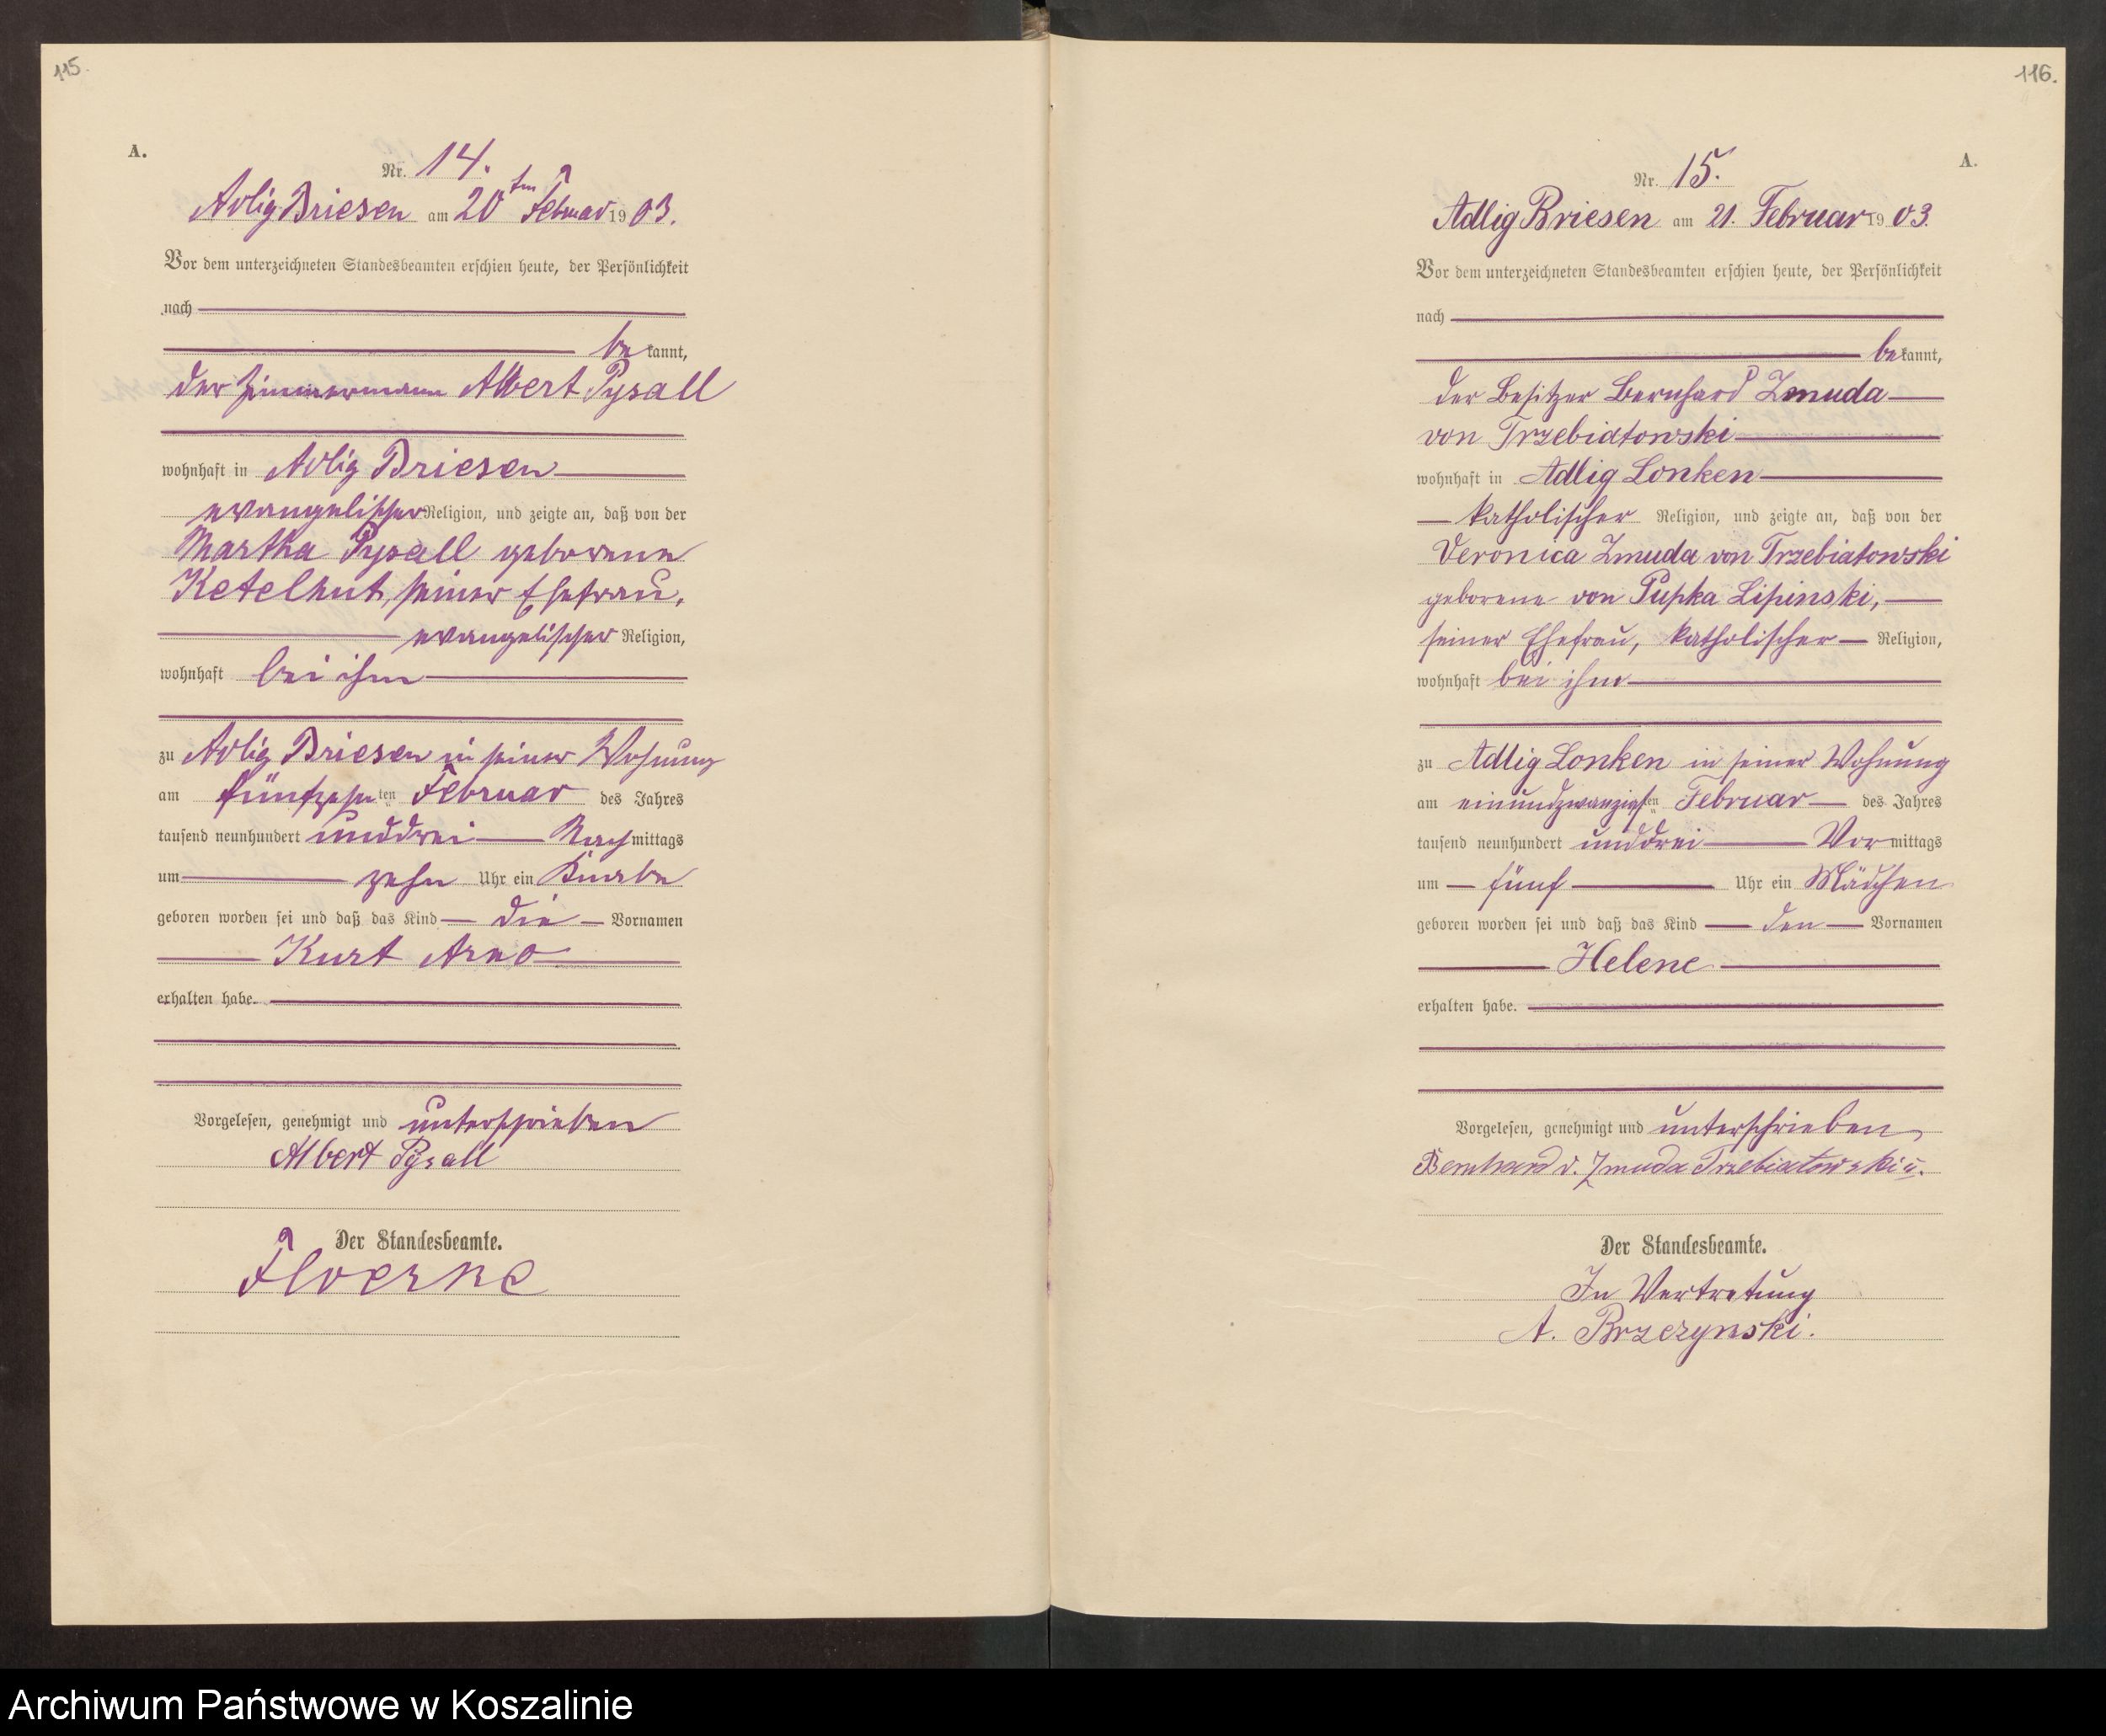 115.
A.
Nr. 14.
Adlig Briesen am 20ten Februar 1903.
Vor dem unterzeichneten Standesbeamten erschien heute, der Persönlichkeit
nach
be kannt,
der Zimmermann Albert Pysall
wohnhaft in Adlig Briesen
evangelischer Religion, und zeigte an, daß von der
Martha Pysall geborene
Ketelhut, seiner Ehefrau,
evangelischer Religion,
wohnhaft bei ihm
zu Adlig Briesen in seiner Wohnung
am fünfzehnten Februar des Jahres
tausend neunhundert unddrei Nachmittags
um zehn Uhr ein Knabe
geboren worden sei und daß das Kind die Vornamen
Kurt Arno
erhalten habe.
Vorgelesen, genehmigt und unterschrieben
Albert Pysall
Der Standesbeamte.
116.
A.
Nr. 15.
Adlig Briesen am 21. Februar 1903.
Vor dem unterzeichneten Standesbeamten erschien heute, der Persönlichkeit
nach
bekannt,
der Besitzer Bernhard Zmuda
von Trzebiatowski
wohnhaft in Adlig Lonken
katholischer Religion, und zeigte an, daß von der
Veronica Zmuda von Trzebiatowski
geborene von Pupka Lipinski,
seiner Ehefrau, katholischer Religion,
wohnhaft bei ihm
zu Adlig Lonken in seiner Wohnung
am einundzwanzigsten Februar des Jahres
tausend neunhundert unddrei Vormittags
um fünf Uhr ein Mädchen
geboren worden sei und daß das Kind den Vornamen
Helene
erhalten habe.
Vorgelesen, genehmigt und unterschrieben
Bernhard v. Zmuda Trzebiatowski II.
Der Standesbeamte.
In Vertretung
A. Brzezynski.
Archiwum Państwowe w Koszalinie